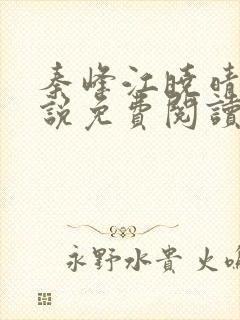 秦峰江曉晴
說免費閱讀
永野水貴 火